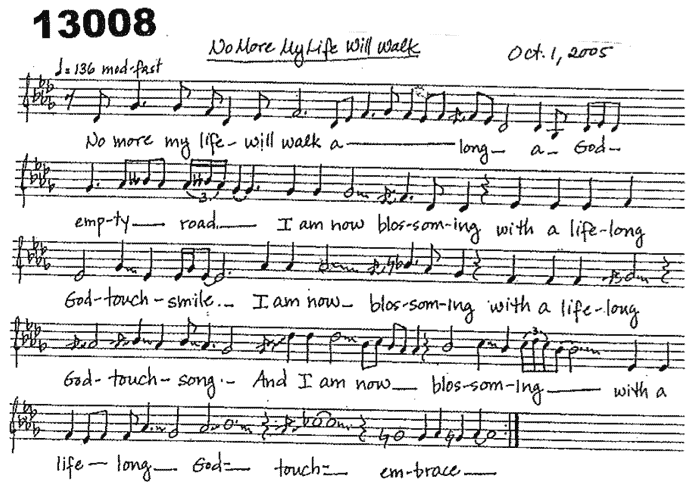 13008
No More My Life Will Walk
Oct. 1, 2005
♩=136 mod-fast
No more my life- will walk a——— long- a- God-
emp-ty— road.— I am now blos-som-ing with a life-long
God-touch-smile.- I am now- blos-som-ing with a life-long
God-touch-song.- And I am now— blos-som-ing— with a
life- long— God= touch= em-brace—